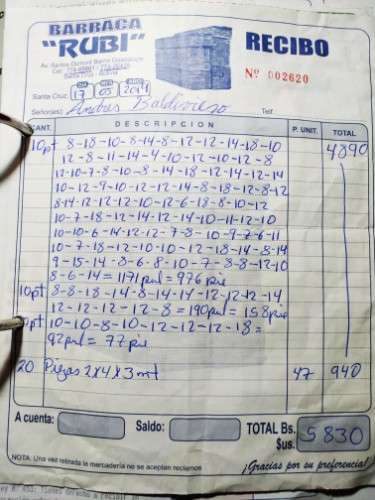 BARRACA
"RUBI"
RECIBO
Av. Santos Dumont Barrio Guadalupe
Nº 002620
Santa Cruz, 17 03
Señor(es) Andres Baldiviezo Telf.
CANT. DESCRIPCION P. UNIT. TOTAL
10pt 8-18-10-8-14-8-12-12-14-18-10 4890
12-8-11-14-4-10-12-10-12-8
12-10-7-8-10-8-14-18-12-14-12-14
10-12-9-10-12-12-14-8-18-12-8-12
8-14-12-12-12-10-12-6-18-8-10-12
10-7-18-12-14-12-14-10-11-12-10
10-10-6-14-12-12-7-8-10-9-7-6-11
10-7-18-12-10-10-12-18-14-8-14
9-15-14-8-6-8-10-7-8-8-12-10
8-6-14=1171pul=976 pie
10pt 8-8-18-14-8-14-14-12-12-12-14
12-12-12-12-8=190pul=158pie
pt 10-10-8-10-12-12-12-18=
92pul=77 pie
20 Piezas 2x4x3 mt 47 940
A cuenta: Saldo: TOTAL Bs. $us. 5830
NOTA: Una vez retirada la mercadería no se aceptan reclamos
¡Gracias por su preferencia!